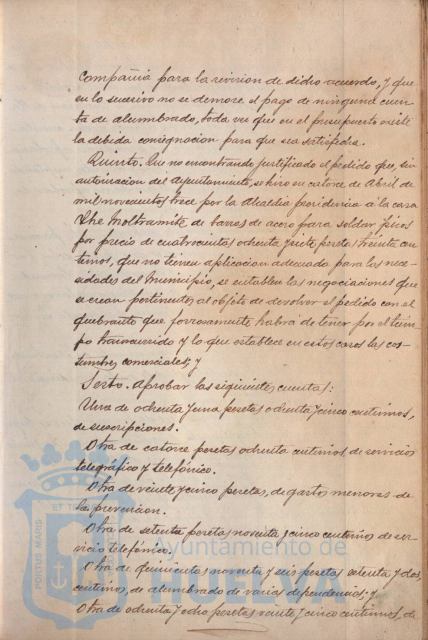 Compañia para la revision de dicho acuerdo, y que
en lo sucesivo no se demore el pago de ninguna cuen-
ta de alumbrado, toda vez que en el presupuesto existe
la debida consignacion para que sea satisfecha.
Quinto. Que no encontrando justificado el pedido que, sin
autorizacion del Ayuntamiento, se hizo en catorce de Abril de
mil novecientos trece por la Alcaldia presidencia a la casa
The de barras de acero para soldar
por precio de cuatrocientas ochenta y siete pesetas treinta cen-
timos, que no tienen aplicacion adecuada para las nece-
sidades del Municipio, se entablen las negociaciones que
se crean pertinentes al objeto de devolver el pedido con el
quebranto que forzosamente habrá de tener por el tiem-
po transcurrido y lo que establece en estos casos las cos-
tumbres comerciales; y
Sexto. Aprobar las siguientes cuentas:
Una de ochenta y una pesetas ochenta y cinco centimos,
de suscripciones.
Otra de catorce pesetas ochenta centimos de servicios
telegráfico y telefónico.
Otra de veinte y cinco pesetas, de gastos menores de
la prevencion.
Otra de setenta pesetas noventa y cinco centimos de ser-
vicio telefónico.
Otra de quinientas noventa y seis pesetas setenta y dos
centimos, de alumbrado de varias dependencias; y
Otra de ochenta y ocho pesetas veinte y cinco centimos, de
PORTUS MARIS
ET TE
Ayuntamiento de
HUELVA